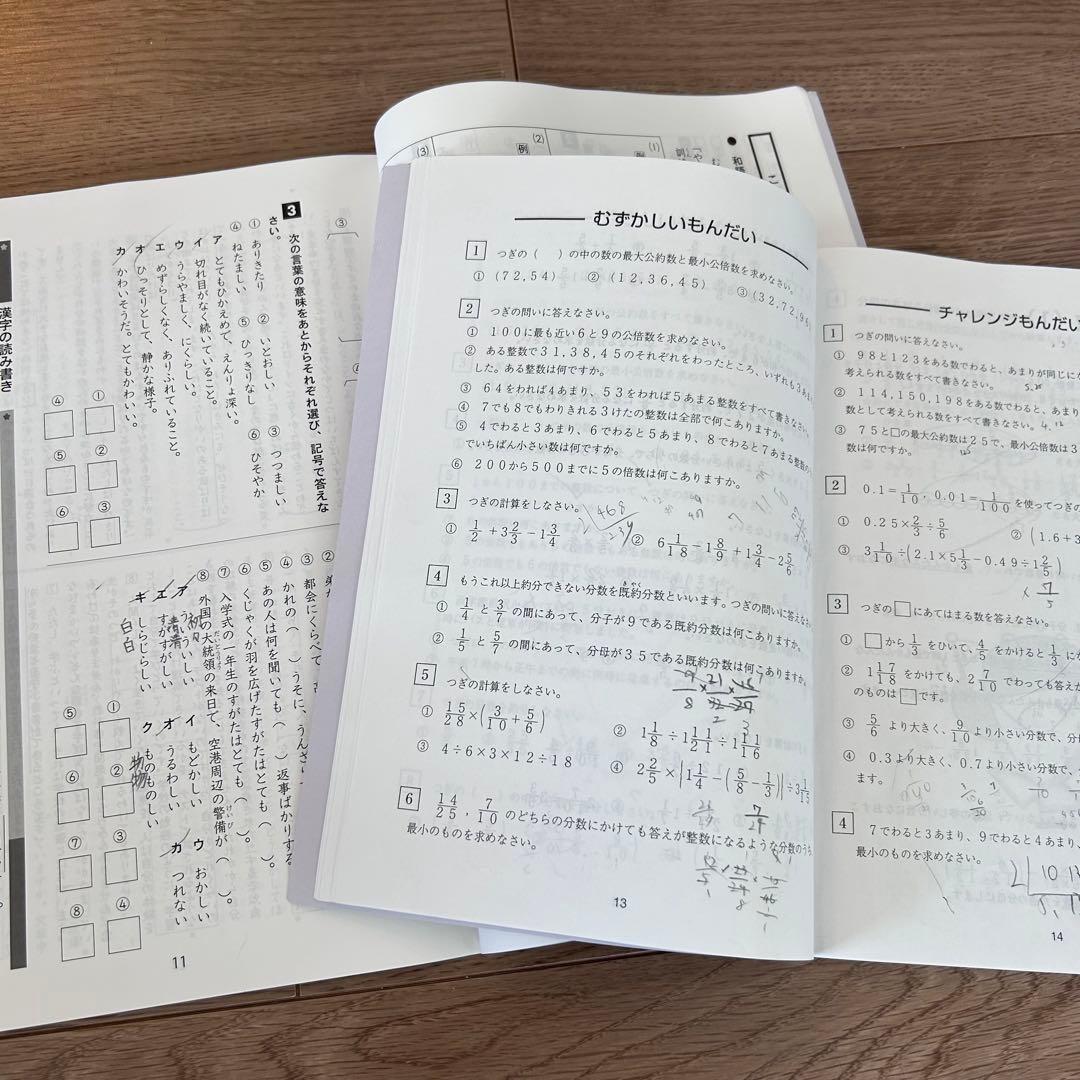 漢字の読み書き
3 次の言葉の意味をあとからそれぞれ選び、記号で答えな
さい。
① ありきたり ② いとおしい ③ つつましい
④ ねたましい ⑤ ひっきりなし ⑥ ひそやか
ア とてもひかえめで、えんりょ深い。
イ 切れ目がなく続いていること。
ウ うらやましく、にくらしい。
エ めずらしくなく、ありふれていること。
オ ひっそりとして、静かな様子。
カ かわいそうだ。とてもかわいい。
① ② ③
④ ⑤ ⑥
③ 都会にくらべて
④ かれの( )うそに、うんざ
⑤ あの人は何を聞いても( )返事ばかりする
⑥ くじゃくが羽を広げたすがたはとても( )。
⑦ 入学式の一年生のすがたはとても( )。
⑧ 外国の大統領の来日で、空港周辺の警備が( )。
だいとうりょう
けいび
ア ういういしい イ もどかしい ウ おかしい
エ すがすがしい オ うるわしい カ つれない
キ しらじらしい ク ものものしい
初
清清
白白
物物
① ② ③ ④
⑤ ⑥ ⑦ ⑧
11
(1)
(2)
例
(3)
和語
むずかしいもんだい
1 つぎの( )の中の数の最大公約数と最小公倍数を求めなさい。
① (72,54) ② (12,36,45) ③ (32,72,96
2 つぎの問いに答えなさい。
① 100に最も近い6と9の公倍数を求めなさい。
② ある整数で31,38,45のそれぞれをわったところ、いずれも3あま
した。ある整数は何ですか。
③ 64をわれば4あまり、53をわれば5あまる整数をすべて書きなさい。
④ 7でも8でもわりきれる3けたの整数は全部で何こありますか。
⑤ 4でわると3あまり、6でわると5あまり、8でわると7あまる整数の
でいちばん小さい数は何ですか。
⑥ 200から500までに5の倍数は何こありますか。
3 つぎの計算をしなさい。
468
234
① 1/2+3 2/3−1 3/4 ② 6 1/18−1 8/9+1 3/4−2 5/6
4 もうこれ以上約分できない分数を既約分数といいます。つぎの問いに答えな
きやく
① 1/4と3/7の間にあって、分子が9である既約分数は何こありますか。
② 1/5と5/7の間にあって、分母が35である既約分数は何こありますか。
5 つぎの計算をしなさい。
① 15/28×(3/10+5/6) ② 1 1/8÷1 11/21÷1 1/16
③ 4÷6×3×12÷18 ④ 2 2/5×{1 1/4−(5/8−1/3)}÷3 1/15
6 14/25,7/10のどちらの分数にかけても答えが整数になるような分数のうち、
最小のものを求めなさい。
13
チャレンジもんだい
1 つぎの問いに答えなさい。
① 98と123をある数でわると、あまりが同じにな
考えられる数をすべて書きなさい。
② 114,150,198をある数でわると、あまり
数として考えられる数をすべて書きなさい。
③ 75と□の最大公約数は25で、最小公倍数は3
数は何ですか。
2 0.1=1/10,0.01=1/100を使ってつぎの
① 0.25×2/3÷5/6 ② (1.6+3
③ 3 1/10÷(2.1×5 1/3−0.49÷1 2/5)
3 つぎの□にあてはまる数を答えなさい。
① □から1/3をひいて、4/5をかけると1/3に
② 1 17/8をかけても、2 7/10でわっても答えが
のものは□です。
③ 5/6より大きく、9/10より小さい分数で、分
④ 0.3より大きく、0.7より小さい分数で、
ます。
4 7でわると3あまり、9でわると4あまり、
最小のものを求めなさい。
14